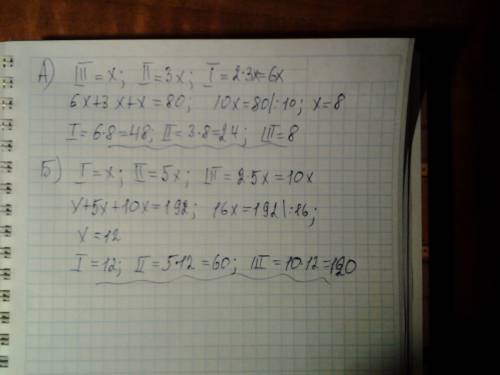 А) III = x; II = 3x; I = 2·3x=6x
6x+3x+x=80; 10x=80|:10; x=8
I=6·8=48; II=3·8=24; III=8
Б) I=x; II=5x; III=2·5x=10x
x+5x+10x=192; 16x=192|:16;
x=12
I=12; II=5·12=60; III=10·12=120